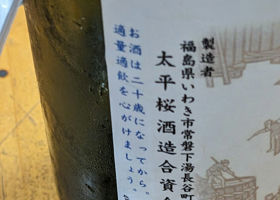 製造者
福島県いわき市常磐下湯長谷町
太平桜酒造合資会
お酒は二十歳になってから。
適量適飲を心がけましょう。